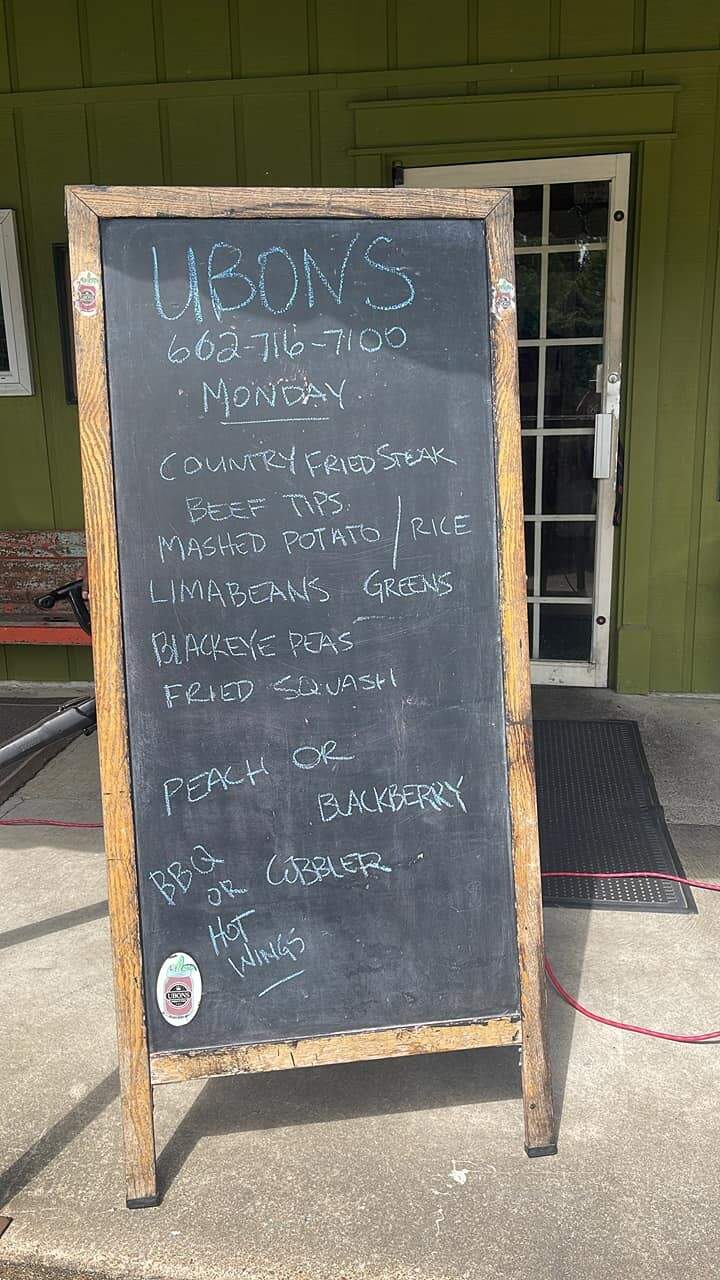 UBON'S
662-716-7100
MONDAY
COUNTRY FRIED STEAK
BEEF TIPS
MASHED POTATO / RICE
LIMABEANS GREENS
BLACKEYE PEAS
FRIED SQUASH
PEACH OR
BLACKBERRY
COBBLER
BBQ
OR
HOT
WINGS
UBON'S